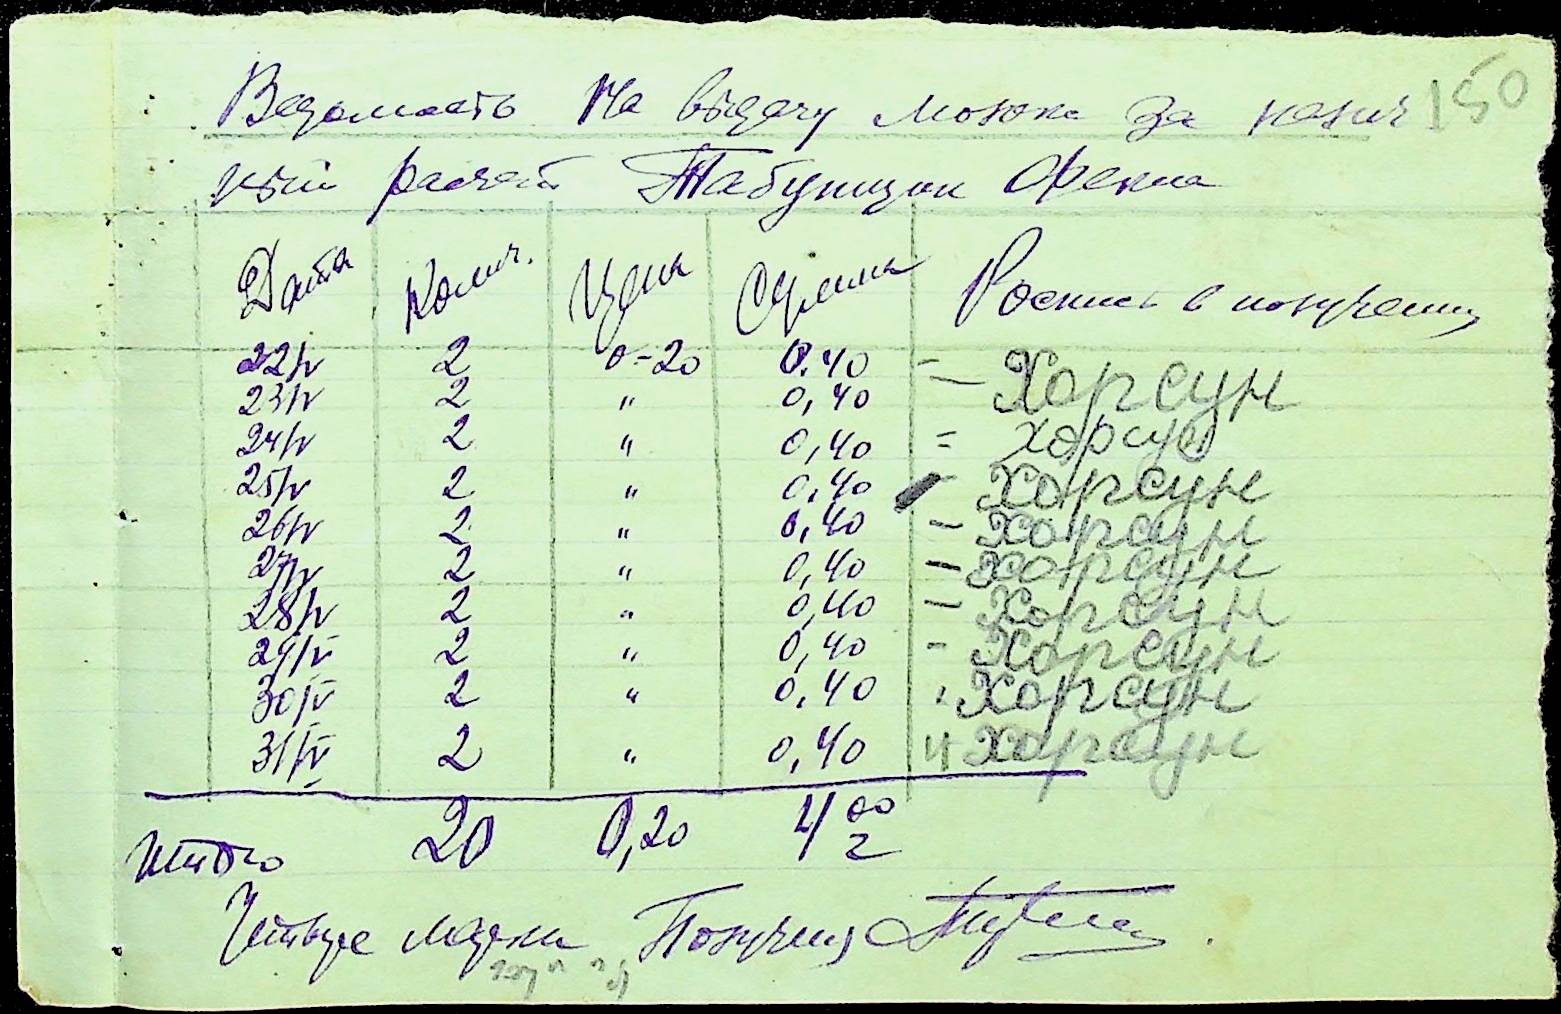 150
Ведомость На выдачу молока за налич
ный расчет Табунщик Фекла
Дата Колич. Цена Сумма Роспись в получении
22/V 2 0-20 0.40 - Хорсун
23/V 2 " 0,40 -
24/V 2 " 0,40 = Хорсун
25/V 2 " 0,40 - Хорсун
26/V 2 " 0,40 - Хорсун
27/V 2 " 0,40 - Хорсун
28/V 2 " 0,40 - Хорсун
29/V 2 " 0,40 - Хорсун
30/V 2 " 0,40 Хорсун
31/V 2 " 0,40 Хорсун
Итого 20 0,20 4 00
Четыре марки Получил